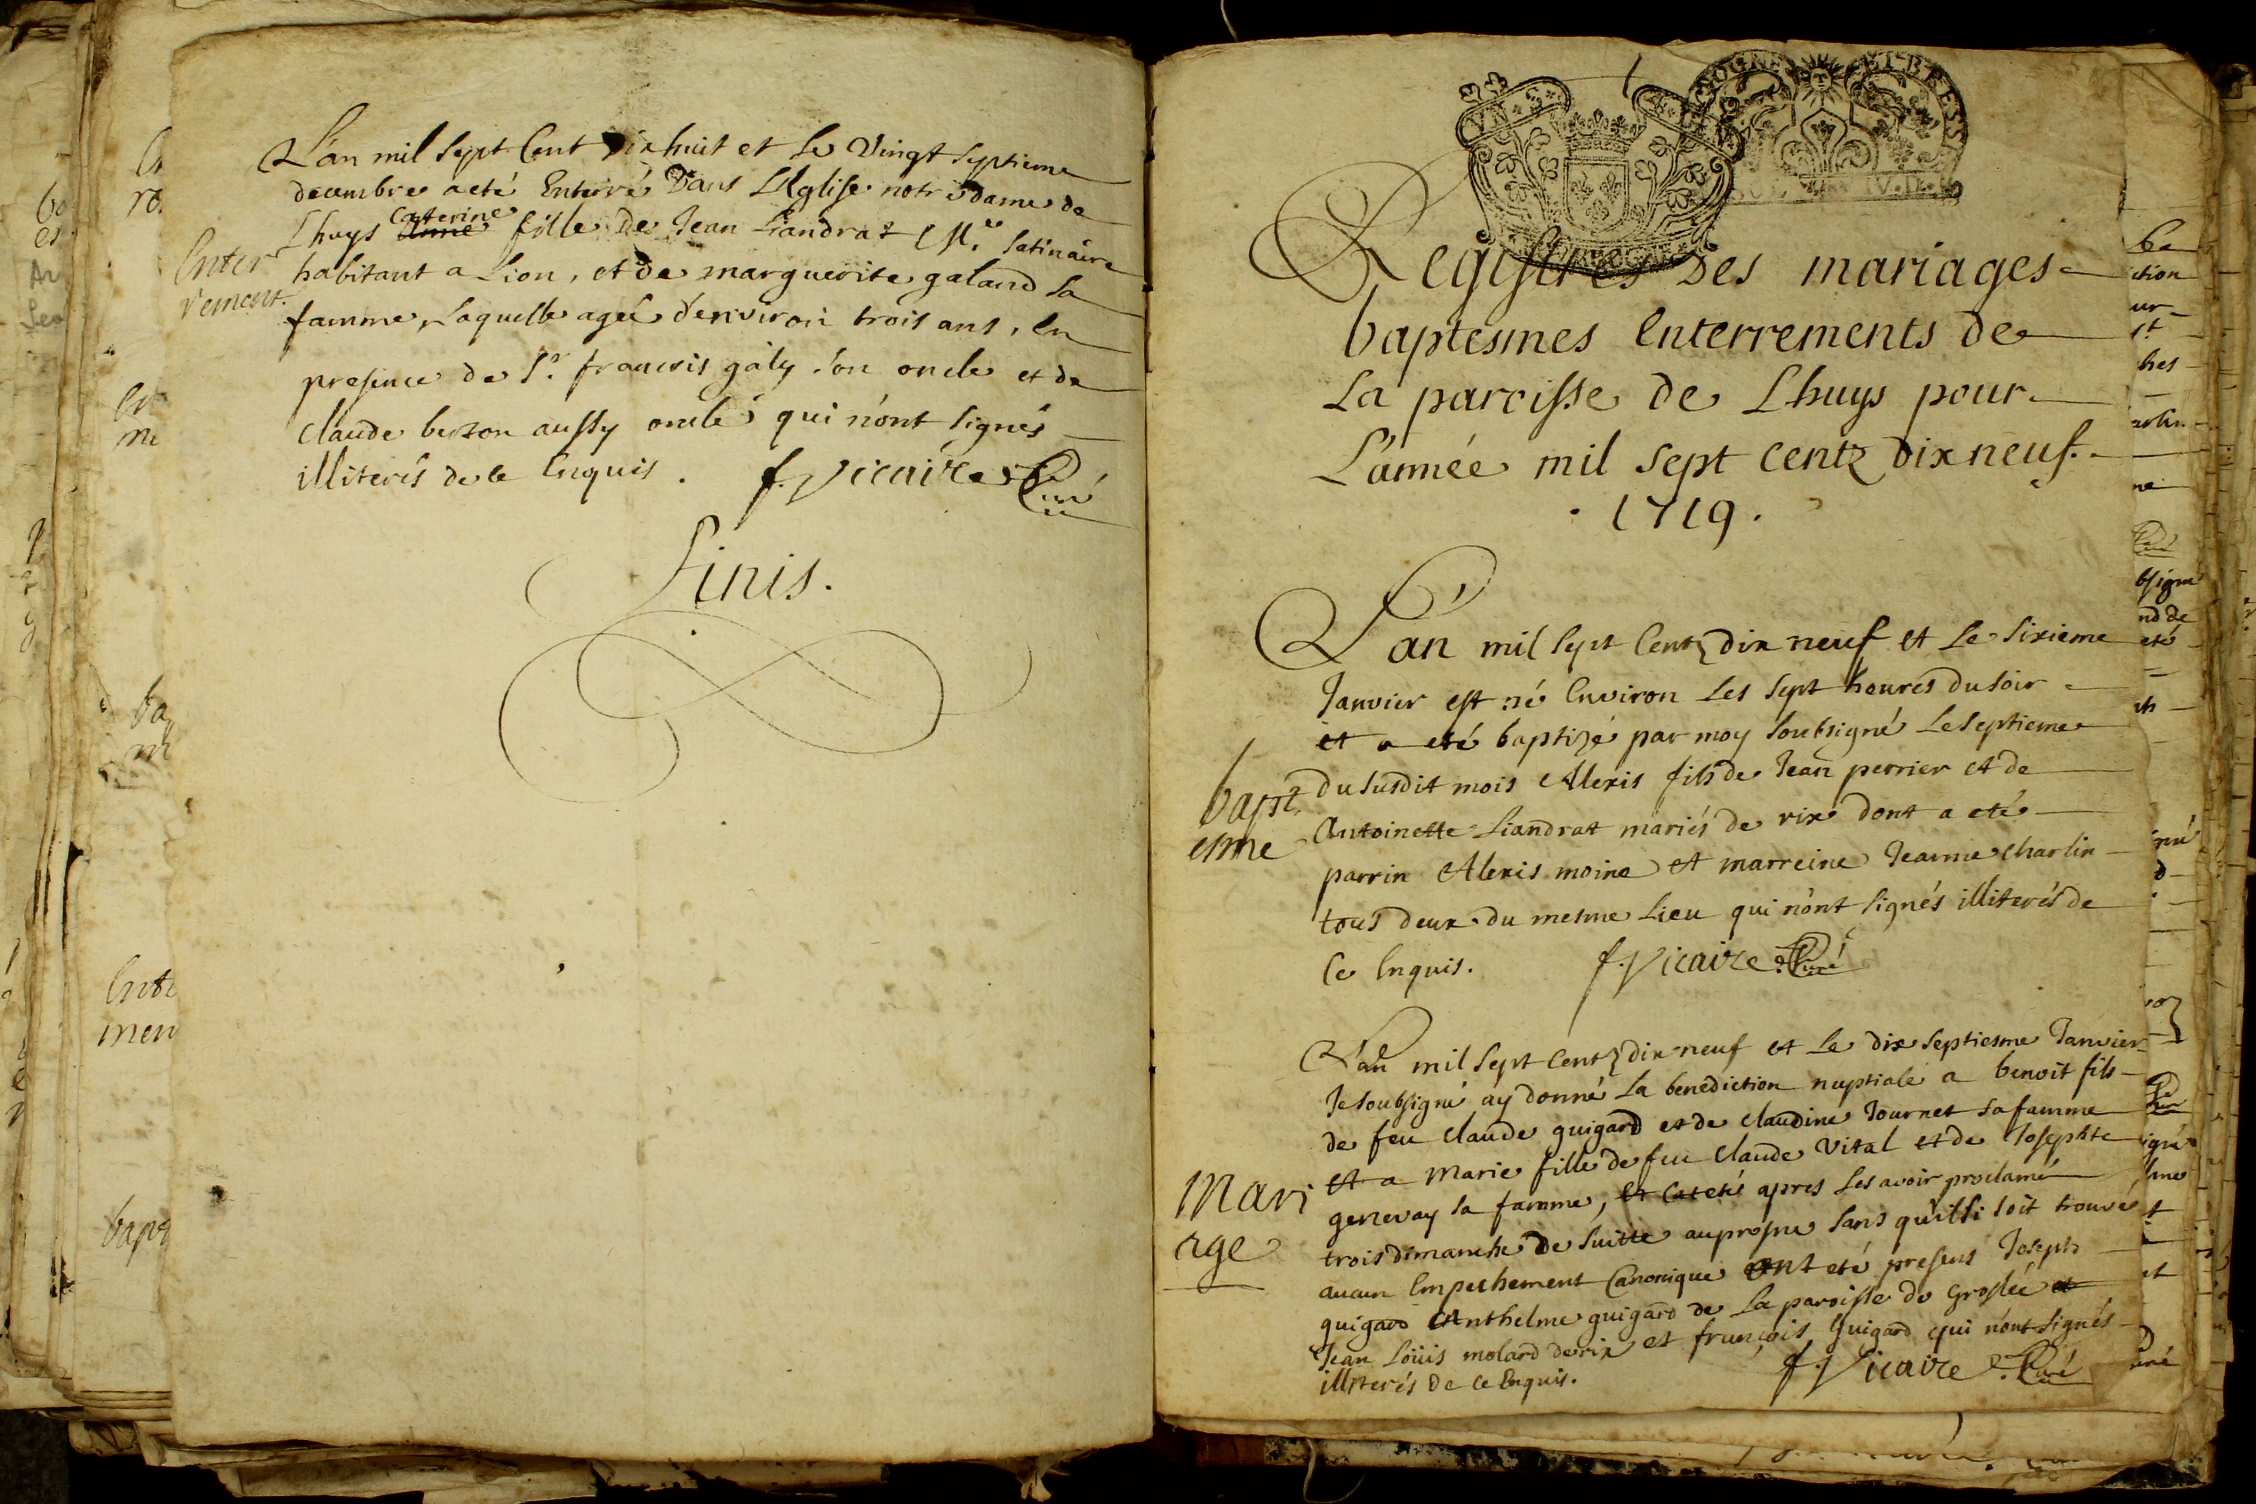 L'an mil sept Cent Dix huit et le vingt septieme
decembre a eté Enterré Dans L'Eglise notre dame de
Lhuys Caterine anne fille de Jean Liandrat M.re satinaire
habitant a Lion, et de marguerite galand sa
famme, Laquelle agée d'environ trois ans, En
presence de S.r francois galy son oncle et de
claude berton aussy oncle qui n'ont signés
illiterés de ce Enquis. f. Vicaire Curé
Enter
rement.
Finis.
BOURGOGNE ET BRESSE
Registres Des mariages
baptesmes Enterrements de
La paroisse de Lhuys pour
L'année mil sept centz dix neuf.
. 1719 .
L'an mil sept Centz dix neuf et Le sixieme
Janvier est né Environ Les sept heures du soir
et a eté baptizé par moy soubsigné Le septieme
du susdit mois Alexis fils de Jean perrier et de
Antoinette Liandrat mariés de rix dont a eté
parrin Alexis moine et marreine Jeanne charlin
tous deux du mesme Lieu qui n'ont signés illiterés de
Ce Enquis. f. Vicaire Curé
bapt
esme
L'an mil sept centz dix neuf et Le dix septiesme Janvier
Je soubsigné ay donné La benediction nuptiale a benoit fils
de feu claude guigard et de claudine Journet sa famme
et a Marie fille de feu claude vital et de Josephte
genevay sa famme, apres Les avoir proclamé
trois dimanche de suitte au prosne sans qu'il si soit trouvé
aucun Empechement Canonique ont eté presens Joseph
guigard Anthelme guigard de La paroisse de Groslée et
Jean Loüis molard de rix et françois Guigard qui n'ont signés
illiterés de ce Enquis. f. Vicaire Curé
Mari
age